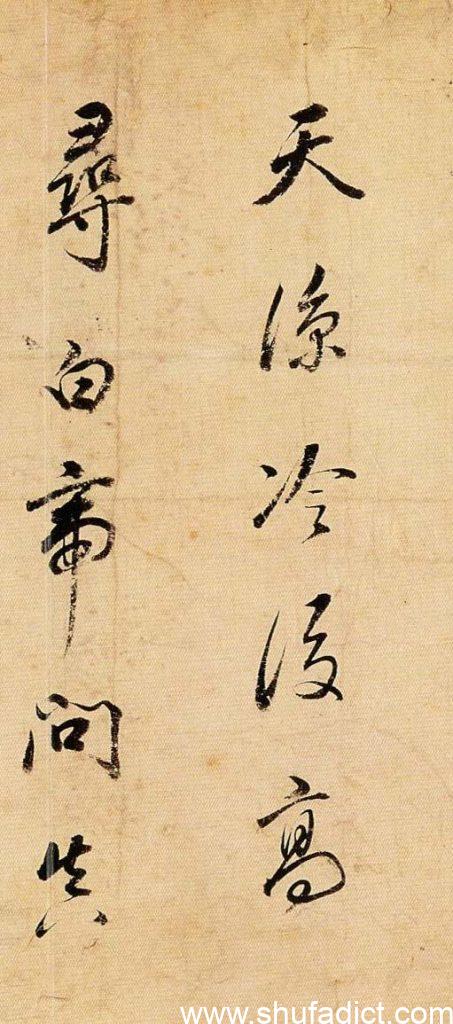 天涼冷後高
尋白帝問真
www.shufadict.com